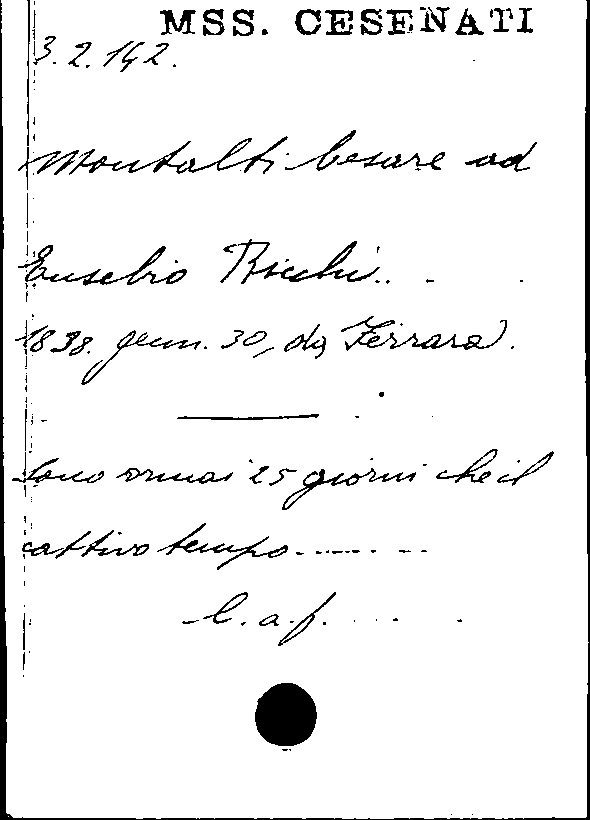 MSS. CESENATI
3.2.142.
Montalti Cesare ad
Eusebio Ricchi..
1838. genn. 30, da Ferrara.
Sono ormai 25 giorni che il
cattivo tempo.........
l. a. f. . . . .